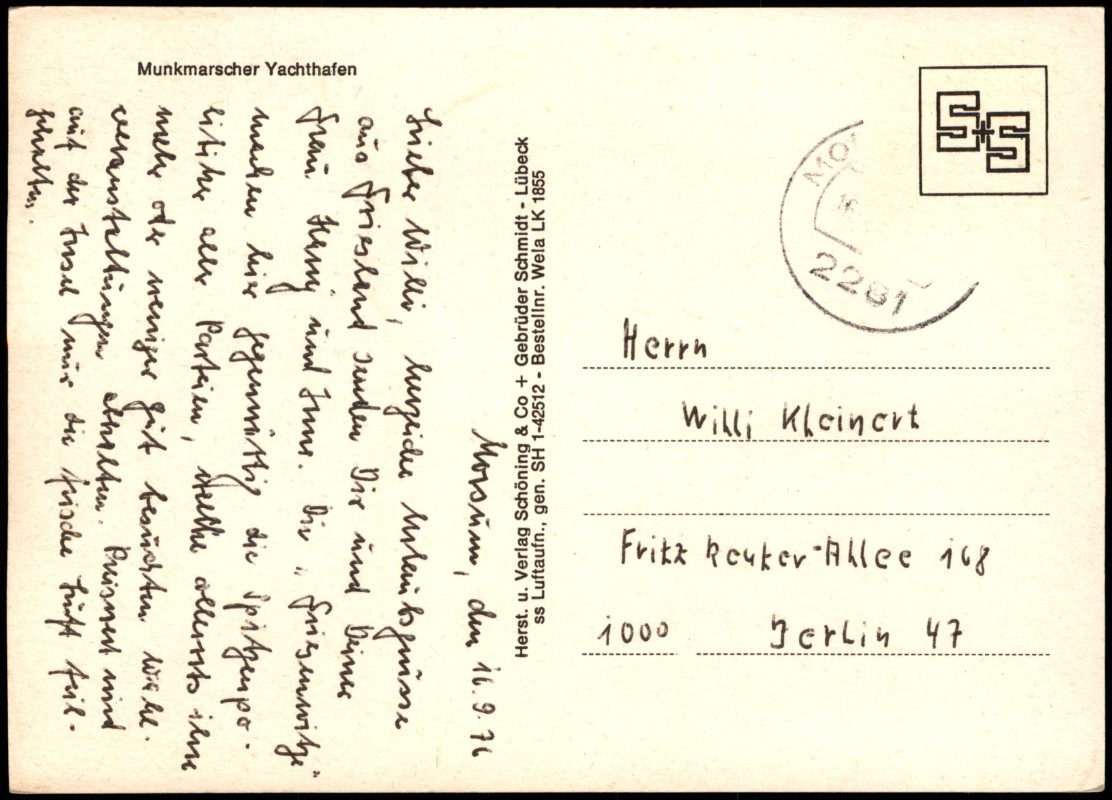 Munkmarscher Yachthafen
Morsum, den 16.9.76
Lieber Willi, herzliche Urlaubsgrüsse
aus Friesland senden Dir und Deiner
Frau Henry und Irene. Die "Friesenwitze"
machen hier gegenwärtig die Spitzenpo-
litiker aller Parteien, welche allerorts ihre
mehr oder weniger gut besuchten Wahl-
veranstaltungen abhalten. Preiswert sind
auf der Insel nur die frische Luft
gehalten.
Herst. u. Verlag Schöning & Co + Gebrüder Schmidt - Lübeck
ss Luftaufn., gen. SH 1-42512 - Bestellnr. Wela LK 1855
S+S
MO
16
2281
Herrn
Willi Kleinert
Fritz Reuter-Allee 168
1000 Berlin 47